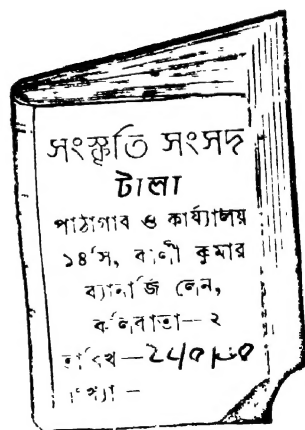 সংস্কৃতি সংসদ
টালা
পাঠাগাব ও কার্য্যালয়
১৪ সি, কালী কুমার
ব্যানার্জি লেন,
কলিকাতা— ২
তারিখ —
সংখ্যা —